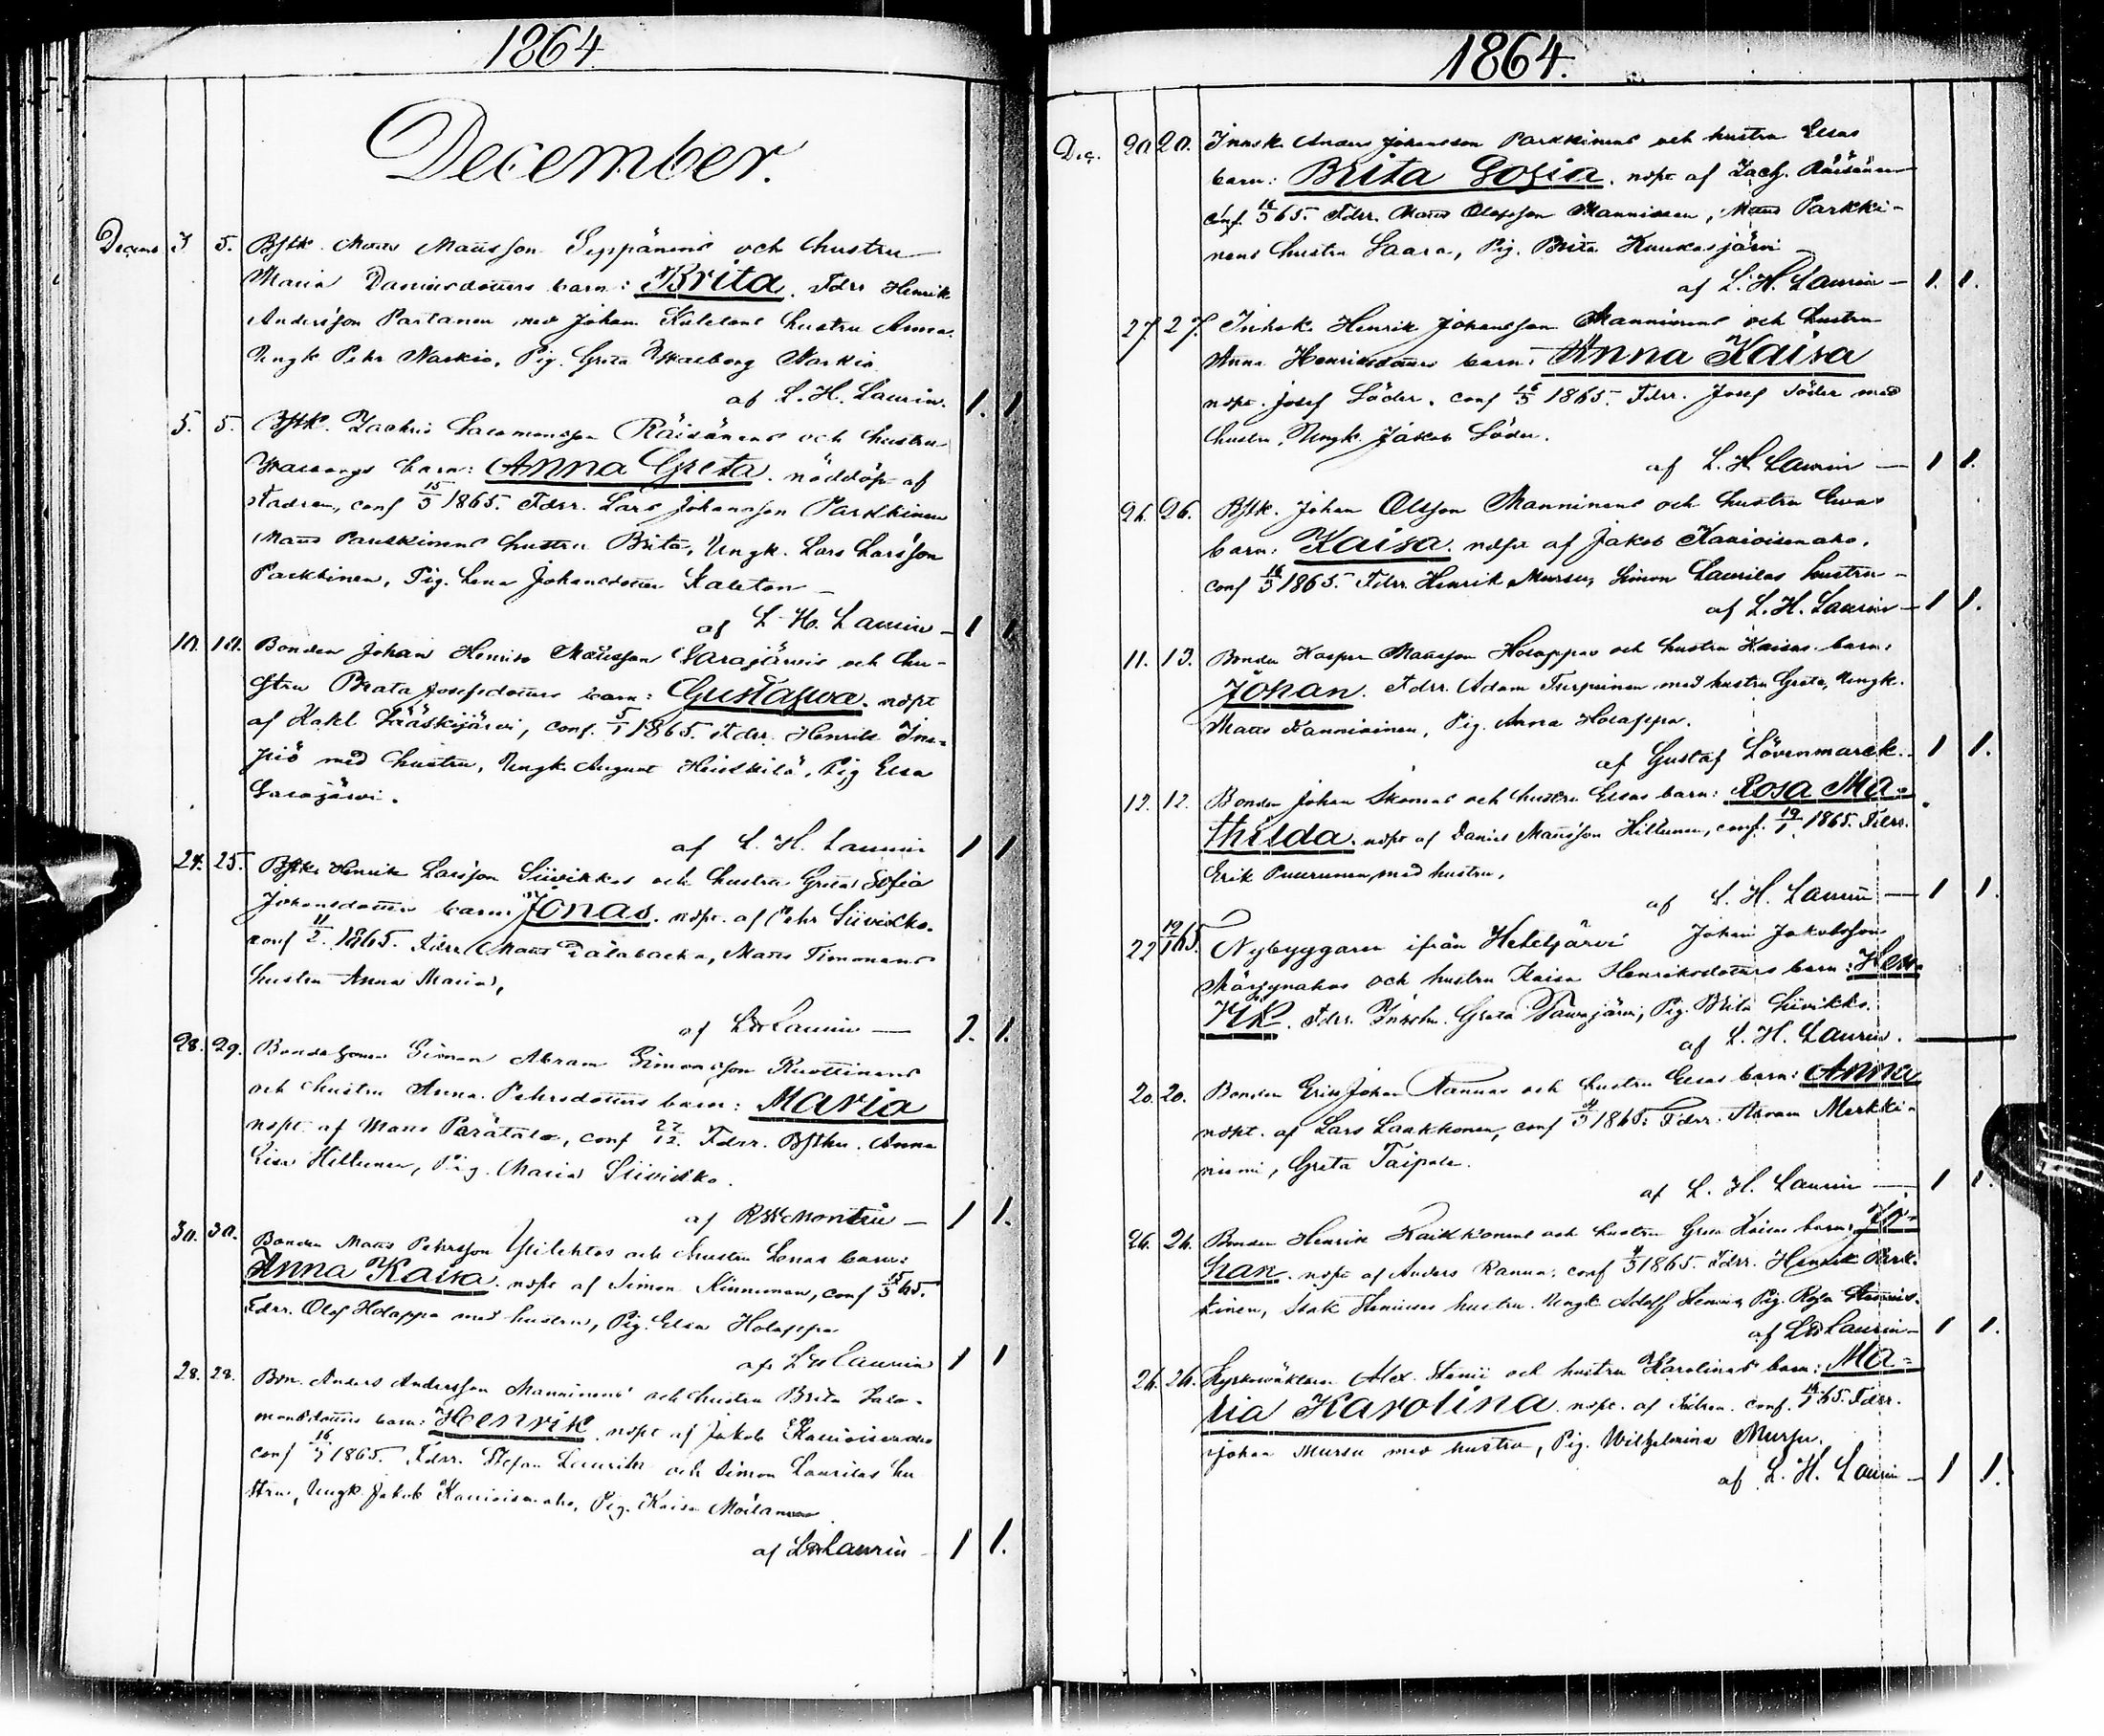 1864
December.
Decemb 3 5. Bstk. Matts Matsson Seppänens och hustru
Maria Danielsdotters barn: Brita. Fdrr Henrik
Andersson Partanen med Johan Kaletons hustru Anna.
Ungk Pehr Narkio, Pig. Greta Walborg Narkio
af L. H. Laurin. 1. 1
5. 5. Bstk. Zachris Salomonsson Räisänens och hustru
Walborgs barn: Anna Greta. nöddöpt af
fadren, conf 15/3 1865. Fdrr. Lars Johansson Parkkinen
Matts Parkkinens hustru Brita, Ungk. Lars Larsson
Parkkinen, Pig. Lena Johansdotter Kaleton
af L. H. Laurin 1 1
10. 10. Bonden Johan Henrik Matsson Sarajärvis och hu-
stru Beata Josefsdotters barn: Gustafva. nöpt
af Kakl Vääskijärvi, conf. 5/1 1865. Fdrr. Henrik
med hustru, Ungk. August Heiskilä, Pig Elsa
Sarajärvi.
af L. H. Laurin 1 1
24. 25. Bstk. Henrik Larsson Siivikkos och hustru Greta Sofia
Johansdotters barn: Jonas. nöpt. af Pehr Siivikko.
conf 11/2. 1865. Fdrr. Matts Dalabacka, Matts Timonens
hustru Anna Maria,
af LH Laurin 1. 1.
28. 29. Bondesonen Simon Abram Simonsson Ruottinens
och hustru Anna Pehrsdotters barn: Maria
nöpt af Matts Parätalo, conf 27/12. Fdrr. Bsthu. Anna
Lisa Hiltunen, Pig. Maria Siivikko.
af RW Montin 1 1.
30. 30. Bonden Matts Pehrsson Ylilehtos och hustru Lenas barn:
Anna Kaisa. nöpt af Simon Kinnunen, conf 15/3 65.
Fdrr. Olof Holappa med hustru, Pig. Elsa Holappa
af LH Laurin 1 1
28. 28. Bon. Anders Andersson Manninens och hustru Brita Salo-
monsdotters barn: Henrik. nöpt af Jakob Kanioisenaho
conf 16/3 1865. Fdrr. Stefan Laurila och Simon Laurilas hu
stru, Ungk Jakob Kanioisenaho, Pig. Kaisa Moilanen
af LH Laurin 1 1.
1864.
Dec. 20 20. Innsk. Anders Johansson Parkkinens och hustru Elsas
barn: Brita Sofia. nöpt af Zach. Räisänen
conf. 16/3 65. Fdrr. Matts Olofsson Manninen, Matts Parkki-
nens hustru Saara, Pig. Brita Kuukasjärvi
af L. H. Laurin 1. 1.
27. 27. Inhsk. Henrik Johansson Manninens och hustru
Anna Henriksdotters barn: Anna Kaisa
nöpt. Josef Söder. conf 16/3 1865. Fdrr. Josef Söder med
hustru, Ungk. Jakob Söder.
af L. H. Laurin 1 1.
26. 26. Bstk. Johan Olsson Manninens och hustru Evas
barn: Kaisa. nöpt af Jakob Kanioisenaho.
conf 16/3 1865. Fdrr. Henrik Mursu, Simon Laurilas hustru
af L. H. Laurin 1 1.
11. 13. Bonden Kasper Matsson Holappas och hustru Kaisas barn:
Johan. Fdrr. Adam Turpeinen med hustru Greta, Ungk.
Matts Kanniainen, Pig. Anna Holappa.
af Gustaf Lövenmarck. 1 1.
12. 12. Bonden Johan Skomas och hustru Elsas barn: Rosa Ma-
thilda. nöpt af Daniel Matsson Hiltunen, conf. 19/1 1865. Fdrr.
Erik Puurunen med hustru.
af L. H. Laurin 1 1.
22 19/1 65. Nybyggaren ifrån Heteljärvi Johan Jakobsson
och hustru Kaisa Henriksdotters barn: Hen-
rik. Fdrr. Greta Taurajärvi, Pig. Brita Siivikko.
af L. H. Laurin.
20. 20. Bonden Erik Johan Rannas och hustru Elsas barn: Anna
nöpt. af Lars Laakkonen, conf 4/3 1865. Fdrr. Abram Merkki-
niemi, Greta Taipale.
af L. H. Laurin 1 1.
26. 26. Bonden Henrik Kaikkonens och hustru Greta Kaisas barn: Jo-
han. nöpt af Anders Ranna. conf 4/3 1865. Fdrr. Henrik Park-
kinen, Isak hustru. Ungk Adolf Pig. Rosa
af LH Laurin 1 1.
26. 26. Kyrkowäktaren Alex. och hustru Karolinas barn: Ma-
ria Karolina. nöpt. af Fadren. conf. 65. Fdrr.
Johan Mursu med hustru, Pig. Wilhelmina Mursu.
af L. H. Laurin 1 1.